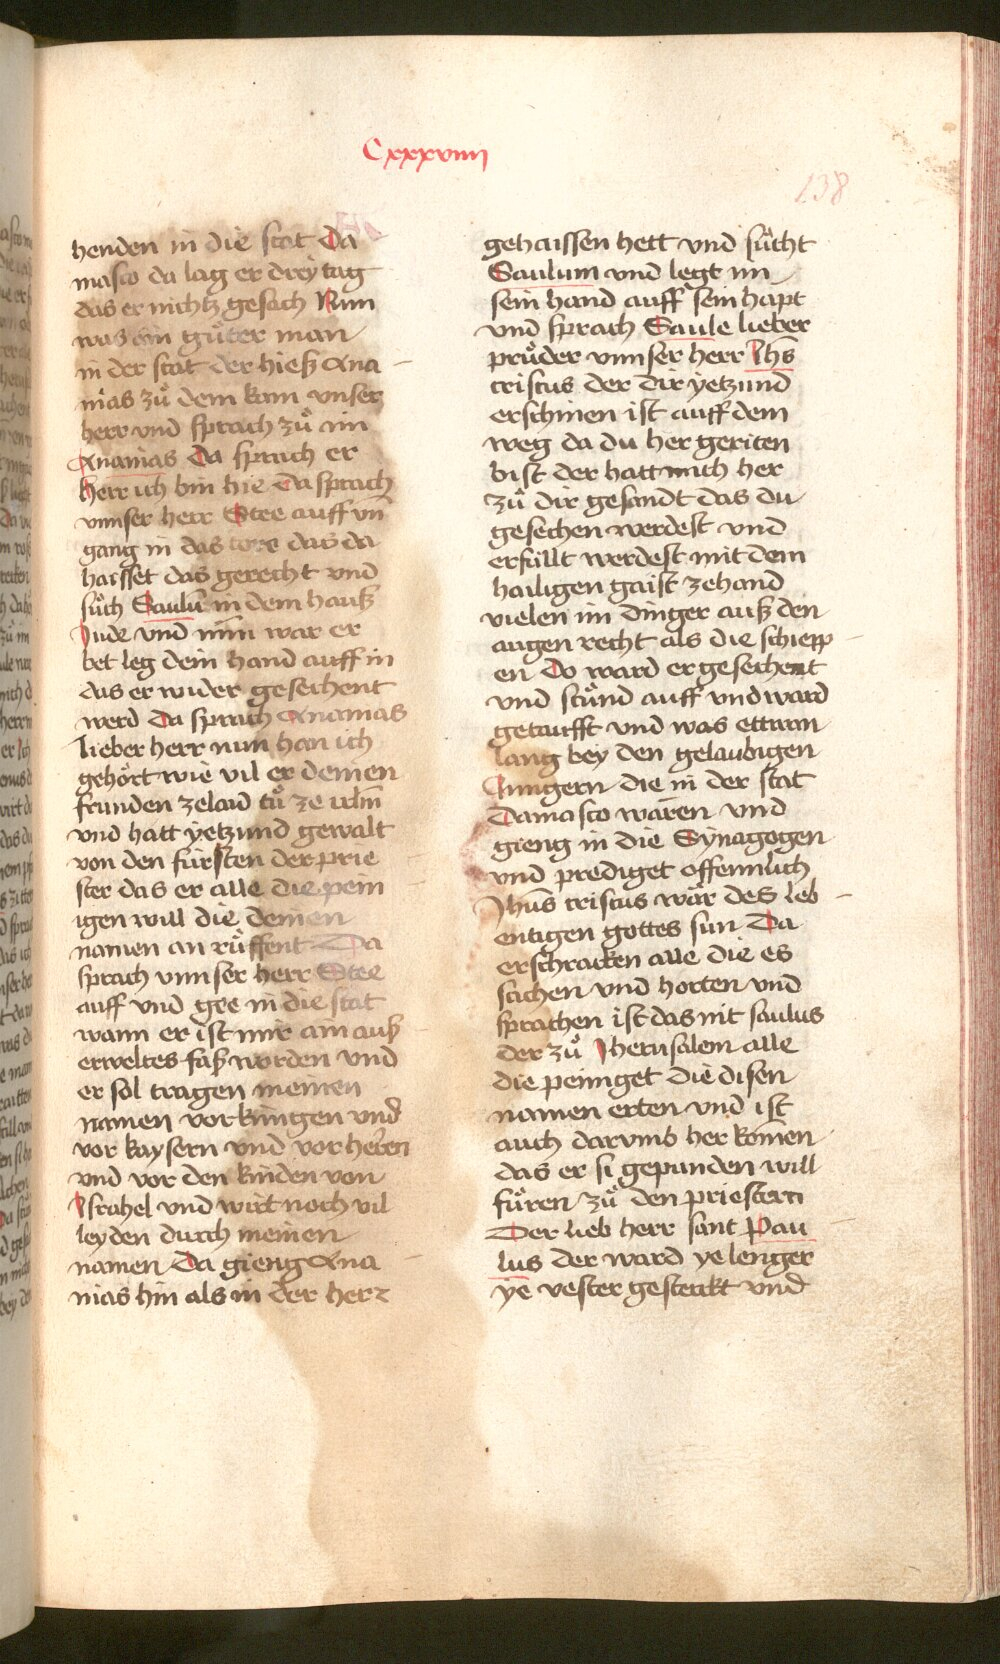 Cxxxviiii
138
henden in die stat Da
masco da lag er drey tag
das er nichtz gesach Nun
was ain guͦter man
in der stat der hieß Ana
nias zuͦ dem kam vnser
herr vnd sprach zuͦ im
Ananias Da sprach er
herr ich bin hie Da sprach
vnnser herr Stee auff vn̄
gang in das dac da
haisset das gerecht vnd
suͦch Saulū in dem hauß
Jude vnd nim̄ war er
bet leg dein hand auff in
das er wider gesechent
werd Da sprach Ananias
lieber herr nun han ich
gehoͤrt wie vil er deinen
frunden ze laid tuͦ ze
vnd hatt yetzund gewalt
von den fürsten der prie
ster das er alle die pein
igen will die deinen
namen an ruͤffent Da
sprach vnnser herr Stee
auff vnd gee in die stat
wann er ist mir ain auß
erweltes faß worden vnd
er sol tragen meinen
namen vor künigen vnd
vor kaysern vnd vor herren
vnd vor den kinden von
Israhel vnd wirt noch vil
leyden durch meinen
namen Da gieng Ana
nias hin als in der herr
gehaissen hett vnd suͦcht
Saulum vnd legt im
sein hand auff sein hapt
vnd sprach Saule lieber
pruͦder vnnser herr Jhs̄
cristus der dir yetzund
erschinen ist auff dem
weg da du her geriten
bist der hatt mich her
zuͦ dir gesandt das du
gesechen werdest vnd
erfüllt werdest mit dem
hailigen gaist zehand
vielen im dinger auß den
augen recht als die schiepp
en Do ward er gesechent
vnd stuͦnd auff vnd ward
getaufft vnd was ettwan
lang bey den gelaubigen
Jungern die in der stat
Damasco waren vnd
gieng in die Synagogen
vnd prediget offennlich
Jhūs cristus waͤr des leb
entigen gottes sun Da
erschracken alle die es
sachen vnd horten vnd
sprachen ist das nit saulus
der zuͦ Jherusalem alle
die peiniget die disen
namen erten vnd ist
auch darvmb her komen
das er si gepunden will
fuͤren zuͦ den priestern
Der lieb herr sant Pau
lus der ward ye lenger
ye vester gesterckt vnd